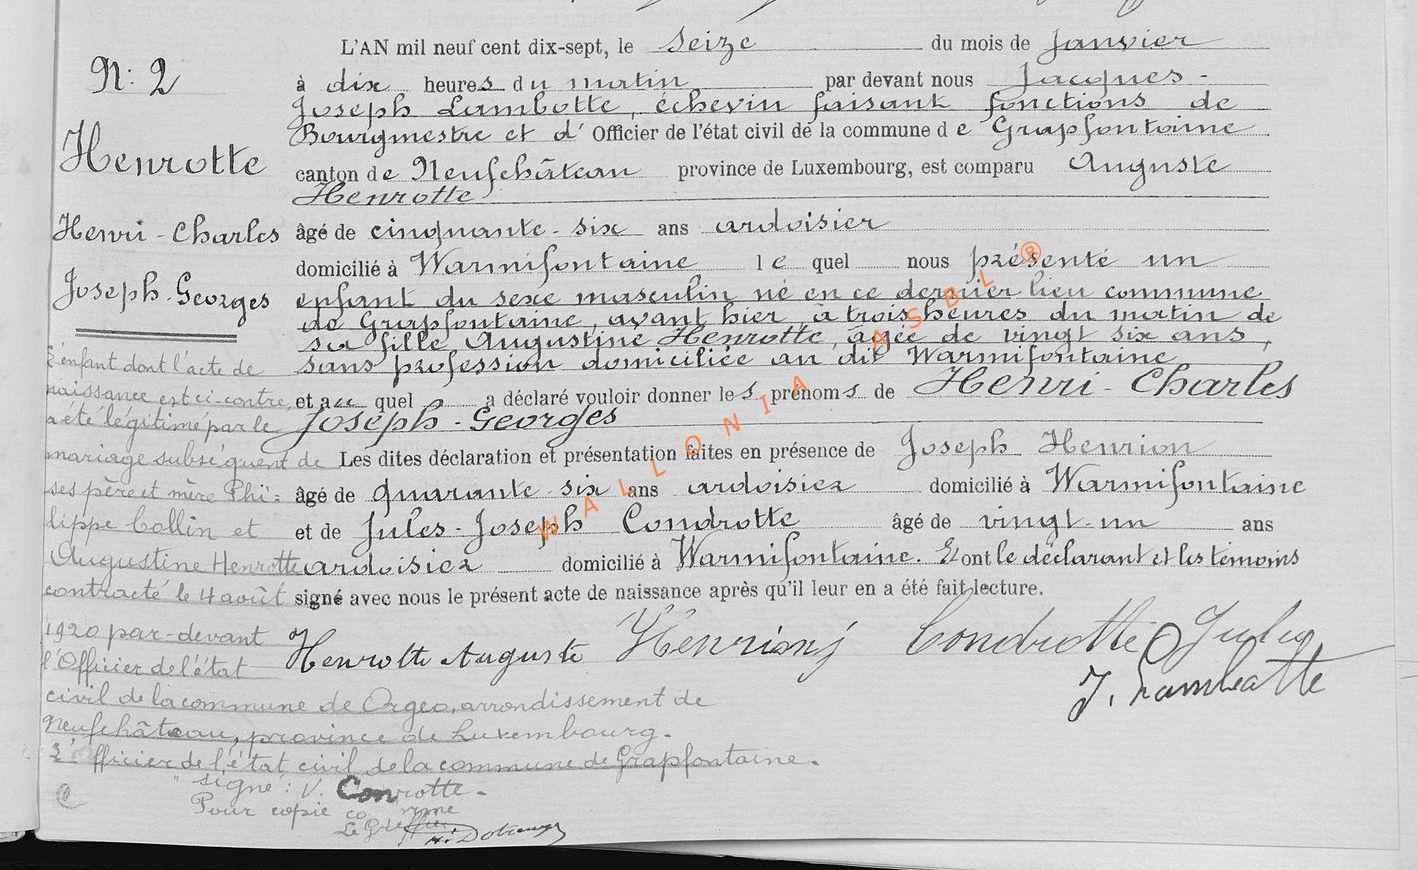 N: 2
Henrotte
Henri-Charles
Joseph-Georges
L'AN mil neuf cent dix-sept, le seize du mois de Janvier
à dix heures du matin par devant nous Jacques-
Joseph Lambotte, échevin faisant fonctions de
Bourgmestre et d'Officier de l'état civil de la commune de Grapfontaine
canton de Neufchâteau province de Luxembourg, est comparu Auguste
Henrotte
âgé de cinquante-six ans ardoisier
domicilié à Warmifontaine lequel nous présenté un
enfant du sexe masculin né en ce dernier lieu commune
de Grapfontaine, avant hier, à trois heures du matin de
sa fille Augustine Henrotte, âgée de vingt six ans,
sans profession domiciliée au dit Warmifontaine
et auquel a déclaré vouloir donner les prénoms de Henri-Charles
Joseph-Georges
Les dites déclaration et présentation faites en présence de Joseph Henrion
âgé de quarante-six ans ardoisier domicilié à Warmifontaine
et de Jules-Joseph Condrotte âgé de vingt-un ans
ardoisier domicilié à Warmifontaine. Et ont le déclarant et les témoins
signé avec nous le présent acte de naissance après qu'il leur en a été fait lecture.
Henrotte Auguste Henrion J Condrotte Jules
J. Lambotte
L'enfant dont l'acte de
naissance est ci-contre,
a été légitimé par le
mariage subséquent de
ses père et mère Phi=
lippe Collin et
Augustine Henrotte
contracté le 4 août
1920 par-devant
l'Officier de l'état
civil de la commune de Orgeo, arrondissement de
Neufchâteau, province de Luxembourg.
L'Officier de l'état civil de la commune de Grapfontaine.
signé: V. Conrotte.
Pour copie conforme
Le Greffier
WALLONIA ASBL ®